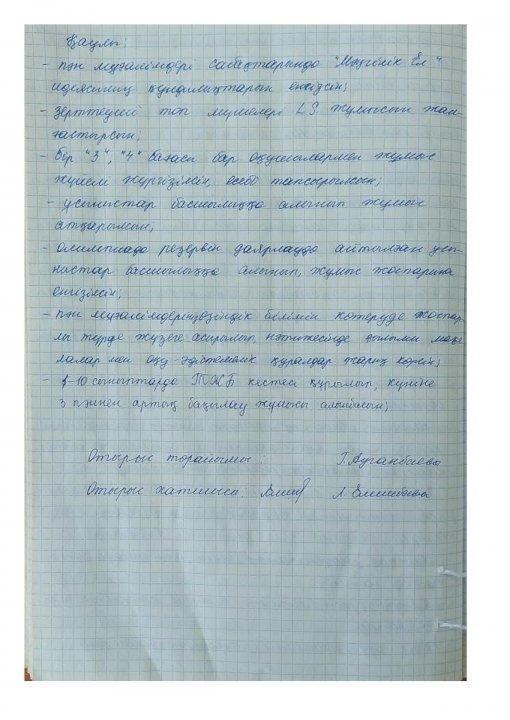 Қаулы:
- пән мұғалімдері сабақтарында "Мәңгілік Ел"
идеясының құндылықтарын енгізсін;
- зерттеуші топ мүшелері LS жұмысын жал-
ғастырсын;
- бір "3", "4" бағасы бар оқушылармен жұмыс
жүйелі жүргізілсін, есебі тапсырылсын;
- ұсыныстар басшылыққа алынып жұмыс
атқарылсын;
- олимпиада резервін даярлауда айтылған ұсы-
ныстар басшылыққа алынып, жұмыс жоспарына
енгізілсін;
- пән мұғалімдерінің өзіндік білімін көтеруде жоспар-
лы түрде жүзеге асырылып, нәтижесінде ғылыми мақа-
лалар мен оқу-әдістемелік құралдар жарық көрсін;
- -10 сыныптарда ТЖБ кестесі құрылып, күніне
3 пәннен артық бақылау жұмысы алынбасын;
Отырыс төрайымы: Г.Ауганбаева
Отырыс хатшысы: Л